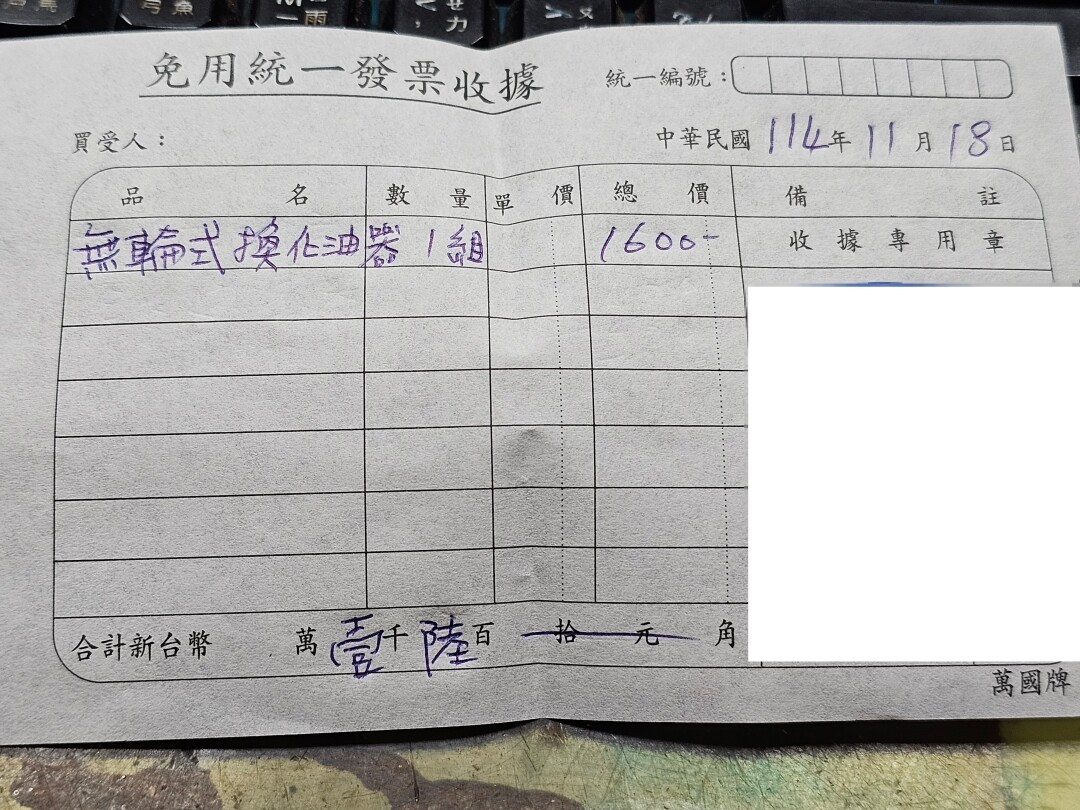 免用統一發票收據
統一編號：
買受人：
中華民國 114年 11月 18日
品名 數量 單價 總價 備註
無輪式換化油器 1組 1600- 收據專用章
合計新台幣 萬壹千陸百拾元角
萬國牌